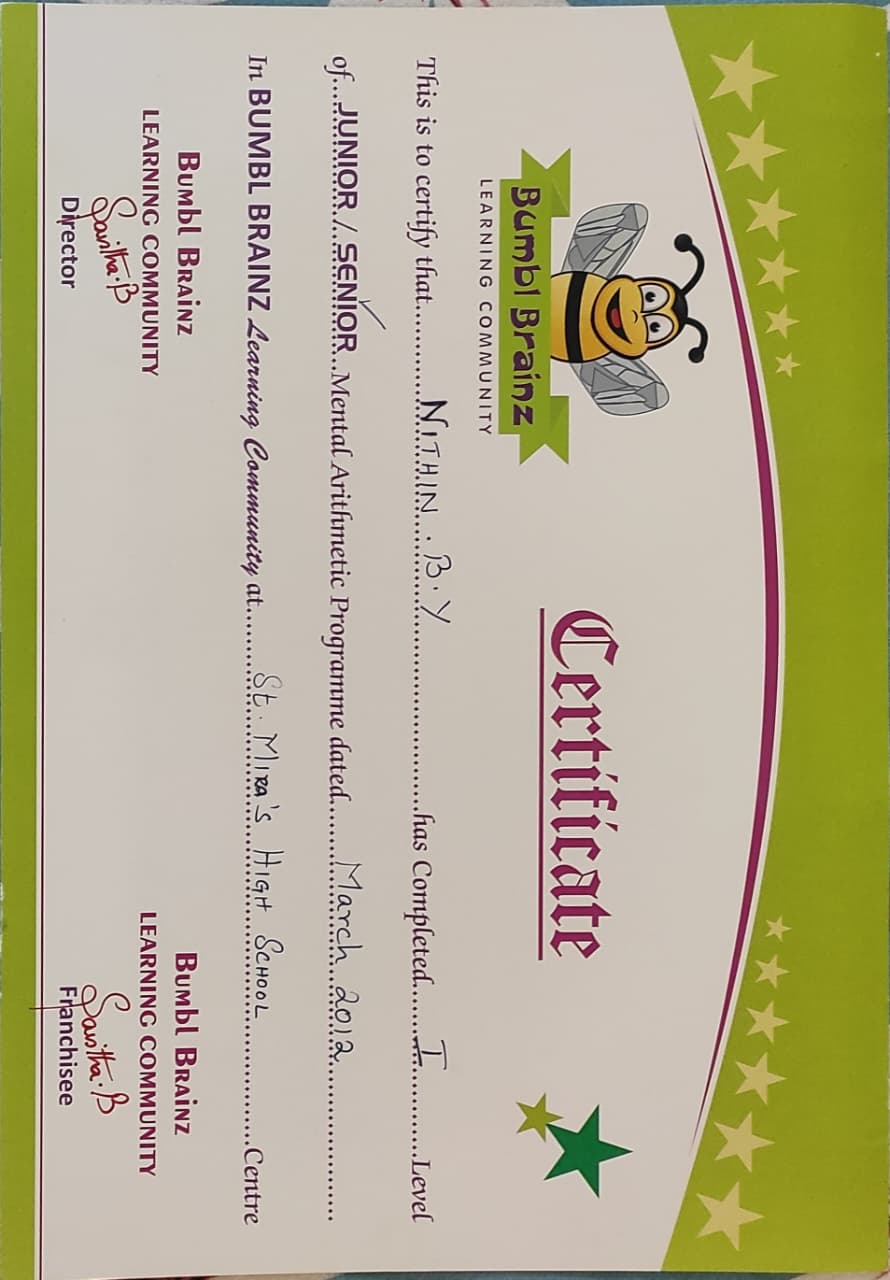 Certificate
Bumbl Brainz
LEARNING COMMUNITY
This is to certify that............NITHIN . B. Y............has Completed......I............Level
of...JUNIOR / SENIOR...Mental Arithmetic Programme dated......March 2012............
In BUMBL BRAINZ Learning Community at.........St. MIRA'S HIGH SCHOOL............Centre
Bumbl Brainz
LEARNING COMMUNITY
Savitha.B
Director
Bumbl Brainz
LEARNING COMMUNITY
Savitha.B
Franchisee